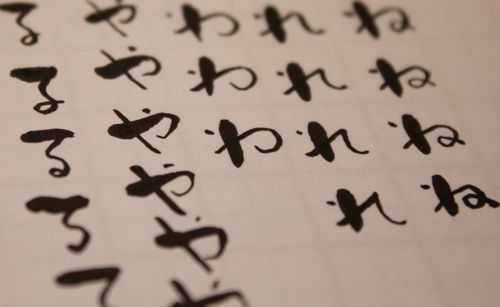 ねねねね
れれれれ
わわわ
ややややや
るるるる